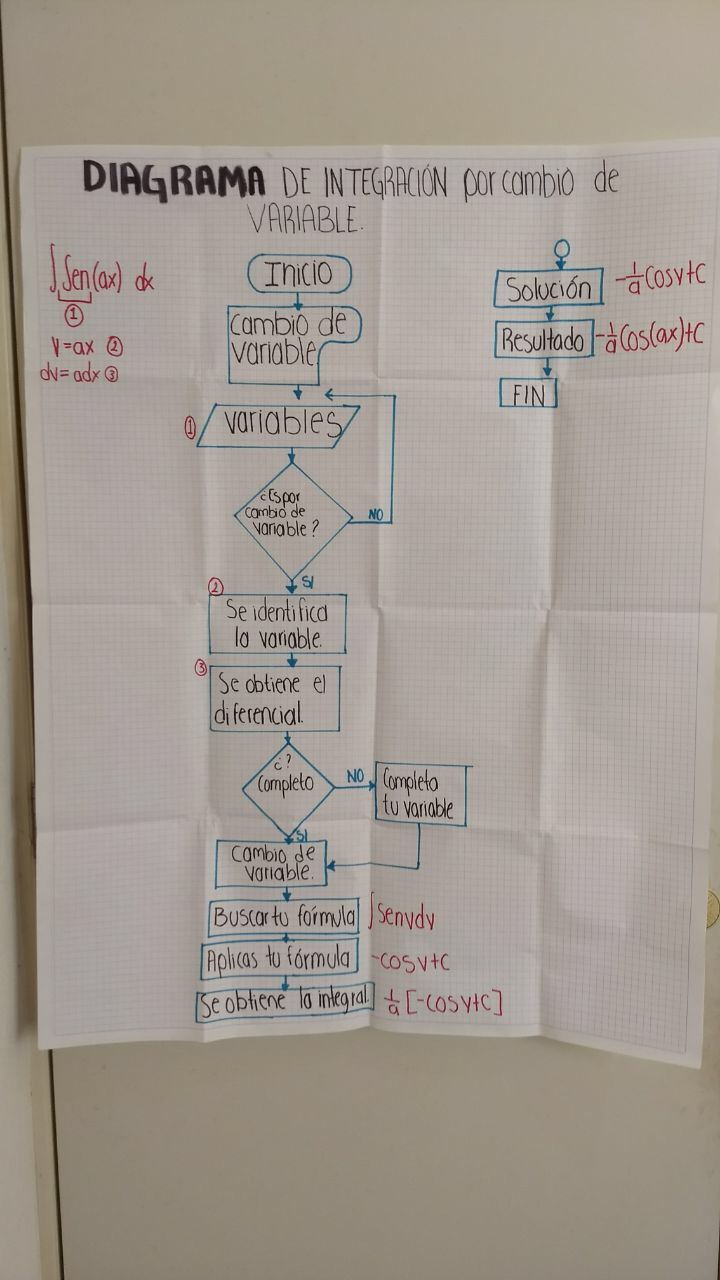 DIAGRAMA DE INTEGRACIÓN por cambio de
VARIABLE.
∫Sen(ax) dx
①
v=ax ②
dv=adx ③
Inicio
cambio de
variable
① variables
¿Es por
cambio de
variable?
NO
SI
②
Se identifica
la variable.
③
Se obtiene el
diferencial.
¿?
Completo
NO
Completa
tu variable
SI
Cambio de
variable.
Buscar tu fórmula ∫senvdv
Aplicas tu fórmula -cosv+c
Se obtiene la integral. 1/a [-cosv+c]
Solución -1/a cosv+c
Resultado -1/a Cos(ax)+c
FIN